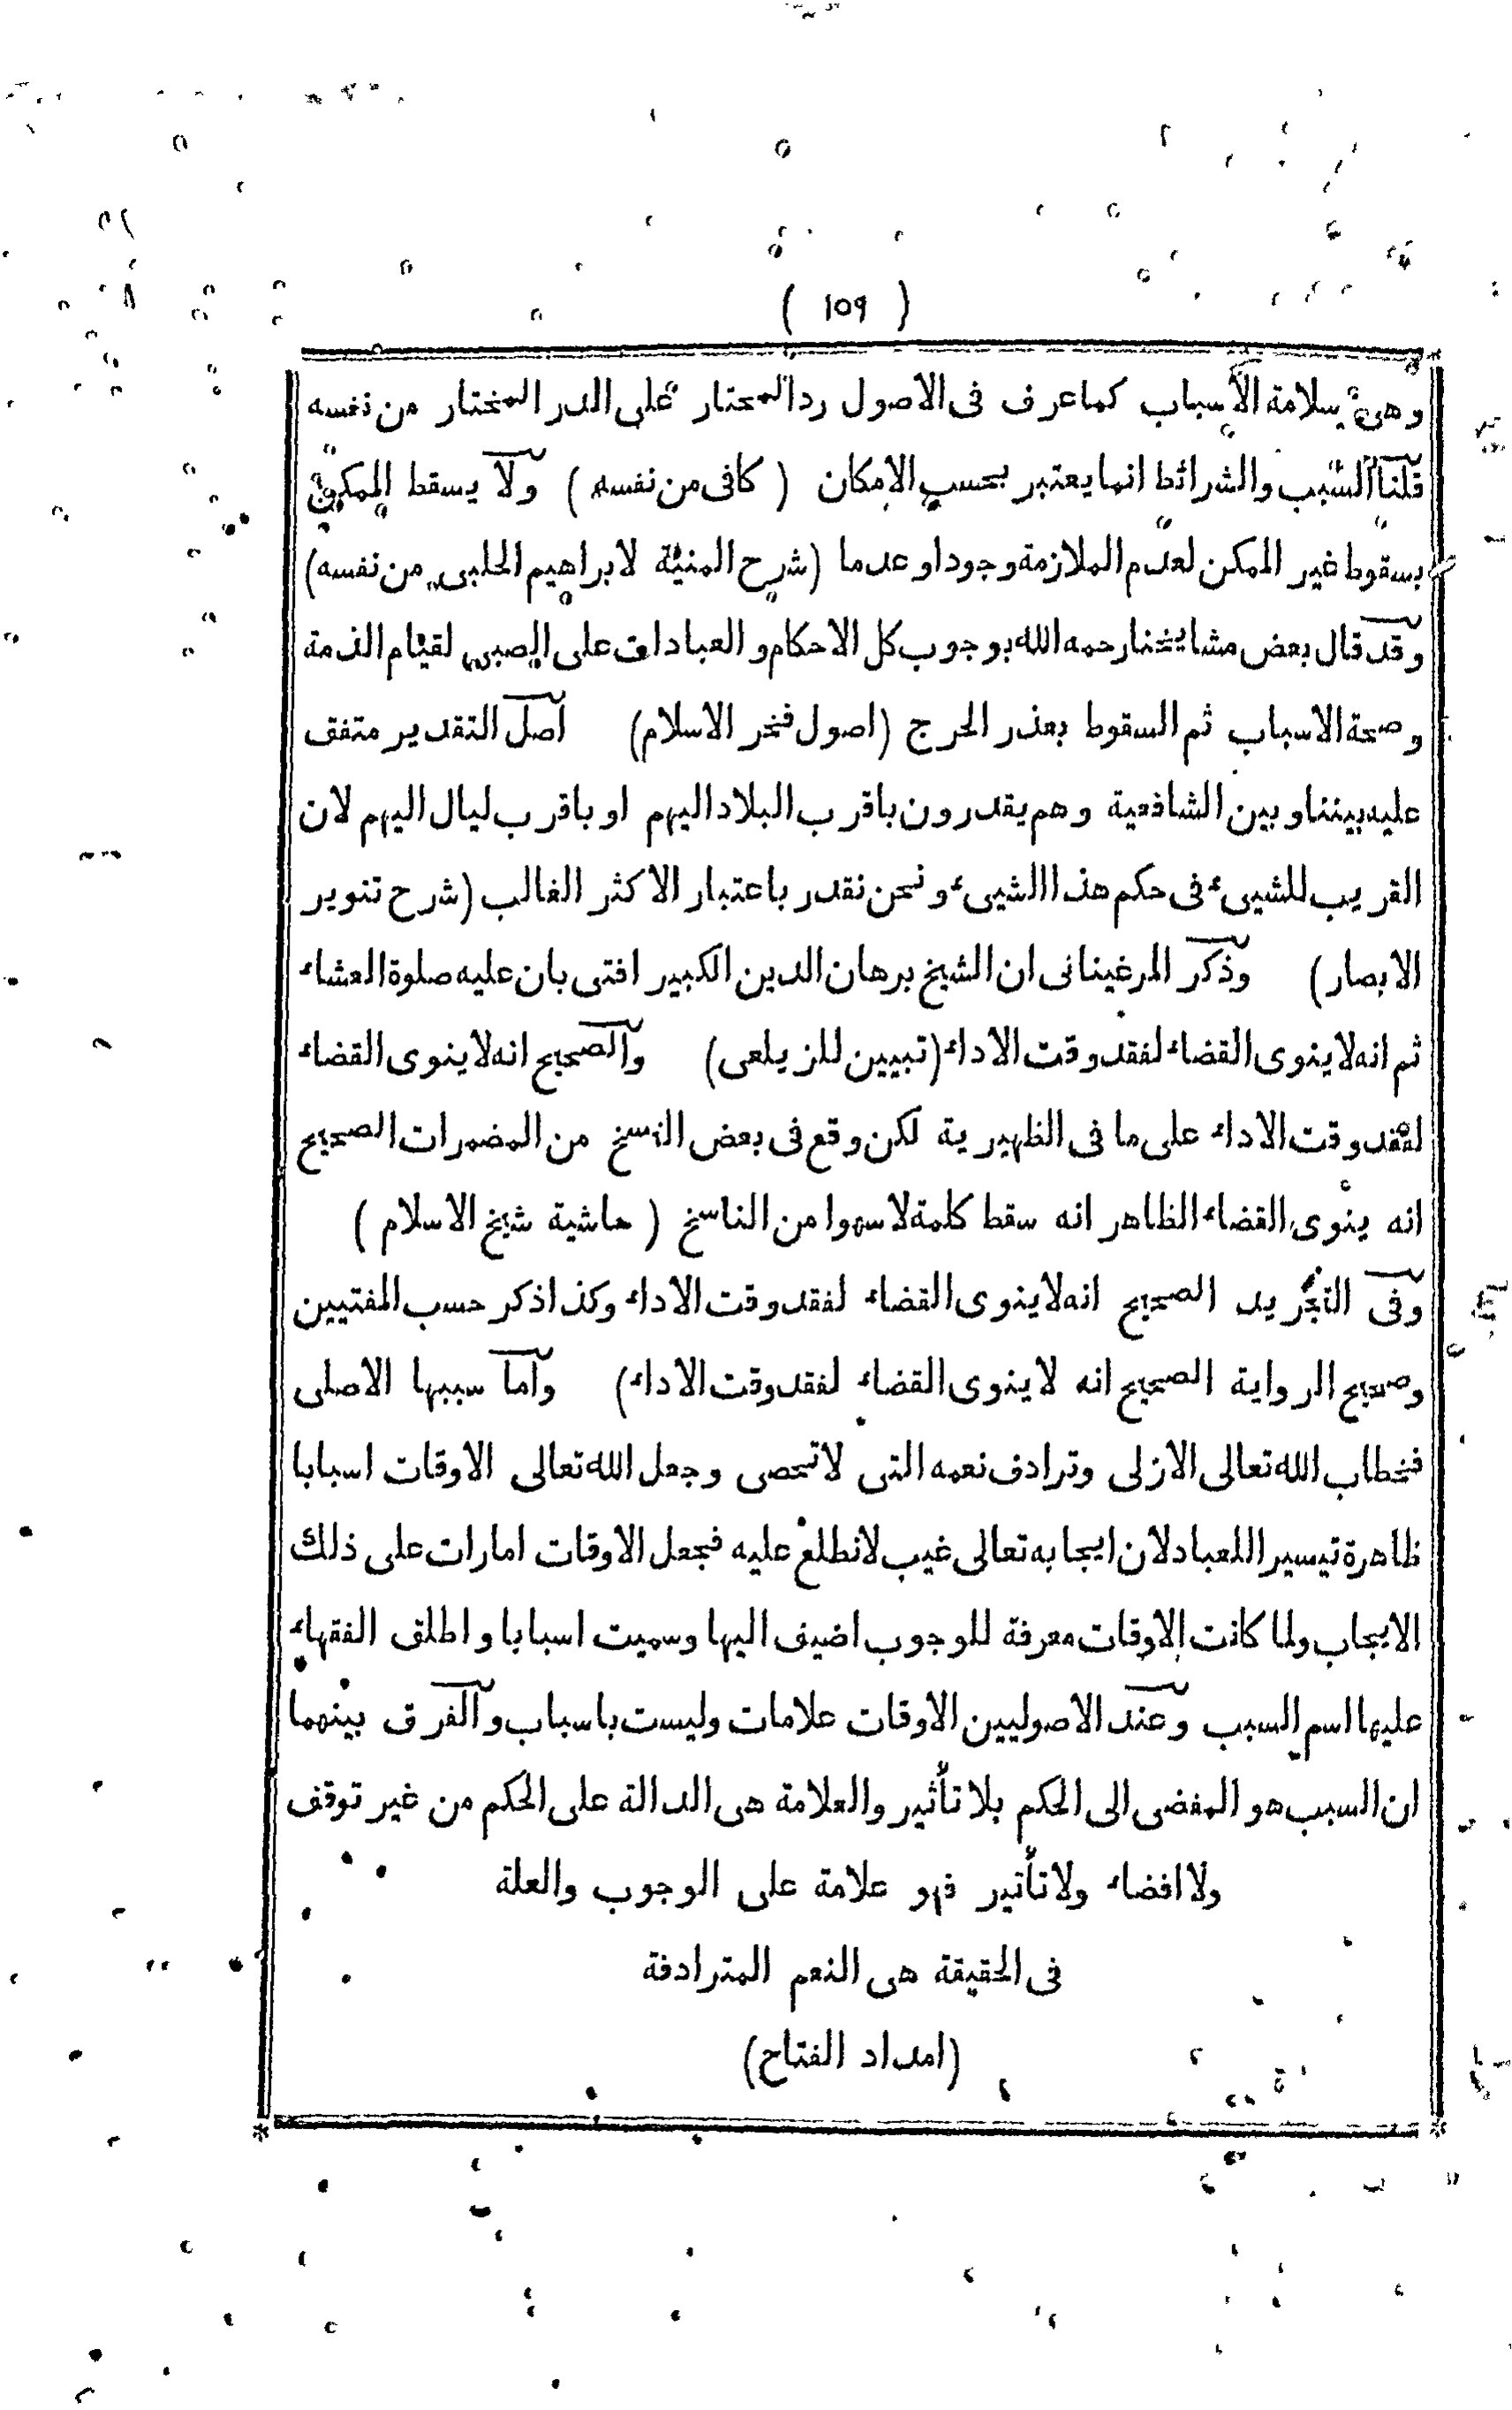 ( ١٥٩ )
وهى سلامة الأسباب كما عرف فى الاصول ردالمحتار على الدر المختار من نفسه
قلنا السبب والشرائط انما يعتبر بحسب الامكان ( كافى من نفسه ) ولا يسقط الممكن
بسقوط غير الممكن لعدم الملازمة وجودا وعدما (شرح المنية لابراهيم الحلبى من نفسه)
وقد قال بعض مشايخنا رحمه الله بوجوب كل الاحكام والعبادات على الصبى لقيام الذمة
وصحة الاسباب ثم السقوط بعذر الحرج (اصول فخر الاسلام) اصل التقدير متفق
عليه بيننا وبين الشافعية وهم يقدرون باقرب البلاد اليهم او باقرب ليال اليهم لان
القريب للشيئ فى حكم هذا الشيئ ونحن نقدر باعتبار الاكثر الغالب (شرح تنوير
الابصار) وذكر المرغينانى ان الشيخ برهان الدين الكبير افتى بان عليه صلوة العشاء
ثم انه لا ينوى القضاء لفقد وقت الاداء (تبيين للزيلعى) والصحيح انه لا ينوى القضاء
لفقد وقت الاداء على ما فى الظهيرية لكن وقع فى بعض النسخ من المضمرات الصحيح
انه ينوى القضاء الظاهر انه سقط كلمة لا سهوا من الناسخ ( حاشية شيخ الاسلام )
وفى التجريد الصحيح انه لا ينوى القضاء لفقد وقت الاداء وكذا ذكر حسب المفتيين
وصحيح الرواية الصحيح انه لا ينوى القضاء لفقد وقت الاداء) واما سببها الاصلى
فخطاب الله تعالى الازلى وترادف نعمه التى لا تحصى وجعل الله تعالى الاوقات اسبابا
ظاهرة تيسيرا للعباد لان ايجابه تعالى غيب لا نطلع عليه فجعل الاوقات امارات على ذلك
الايجاب ولما كانت الاوقات معرفة للوجوب اضيف اليها وسميت اسبابا واطلق الفقهاء
عليها اسم السبب وعند الاصوليين الاوقات علامات وليست باسباب والفرق بينهما
ان السبب هو المفضى الى الحكم بلا تأثير والعلامة هى الدالة على الحكم من غير توقف
ولا افضاء ولا تأثير فهو علامة على الوجوب والعلة
فى الحقيقة هى النعم المترادفة
(امداد الفتاح)